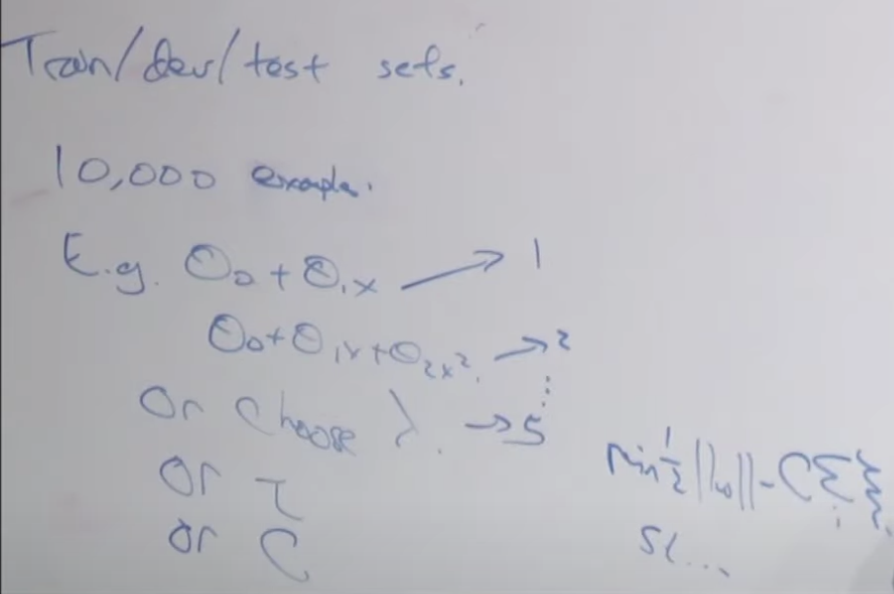 Train/dev/test sets.
10,000 example.
E.g. Θ₀ + Θ₁x → 1
Θ₀ + Θ₁x + Θ₂x². → 2
⋮
Or choose λ. → 5
or τ
or C
min ½ ||w|| - C Σᵢ ξᵢ
st...